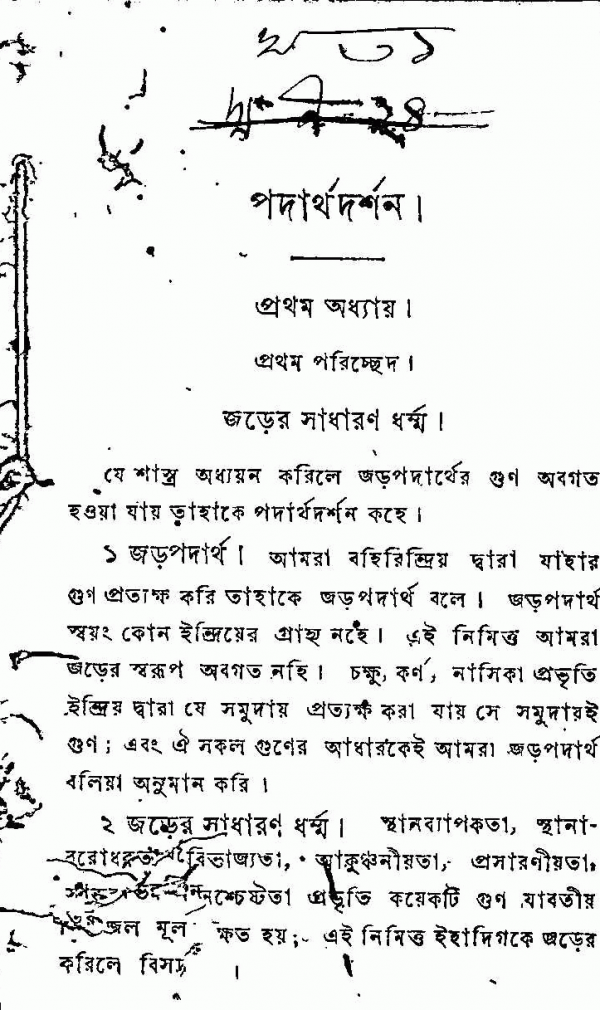 পদার্থদর্শন।
প্রথম অধ্যায়।
প্রথম পরিচ্ছেদ।
জড়ের সাধারণ ধর্ম্ম।
যে শাস্ত্র অধ্যয়ন করিলে জড়পদার্থের গুণ অবগত
হওয়া যায় তাহাকে পদার্থদর্শন কহে।
১ জড়পদার্থ। আমরা বহিরিন্দ্রিয় দ্বারা যাহার
গুণ প্রত্যক্ষ করি তাহাকে জড়পদার্থ বলে। জড়পদার্থ
স্বয়ং কোন ইন্দ্রিয়ের গ্রাহ্য নহে। এই নিমিত্ত আমরা
জড়ের স্বরূপ অবগত নহি। চক্ষু, কর্ণ, নাসিকা প্রভৃতি
ইন্দ্রিয় দ্বারা যে সমুদায় প্রত্যক্ষ করা যায় সে সমুদায়ই
গুণ; এবং ঐ সকল গুণের আধারকেই আমরা জড়পদার্থ
বলিয়া অনুমান করি।
২ জড়ের সাধারণ ধর্ম্ম। স্থানব্যাপকতা, স্থানা-
আকুঞ্চনীয়তা, প্রসারণীয়তা,
প্রভৃতি কয়েকটি গুণ যাবতীয়
জল মূল ক্ষত হয়; এই নিমিত্ত ইহাদিগকে জড়ের
করিলে